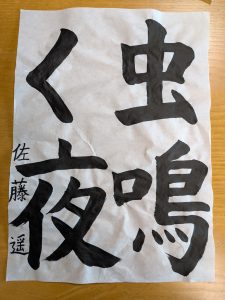 虫鳴
く夜
佐藤遥